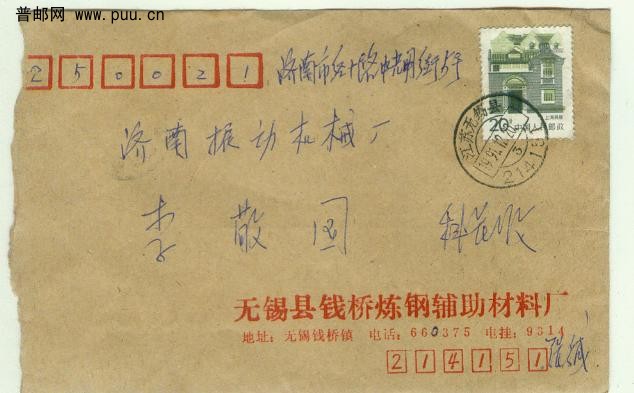 普邮网
www.puu.cn
250021
济南市经十路中光明街5号
济南振动机械厂
李敬国 科长收
20分 上海民居
中国人民邮政
江苏无锡县
214151
无锡县钱桥炼钢辅助材料厂
地址：无锡钱桥镇 电话：660375 电挂：9314
214151